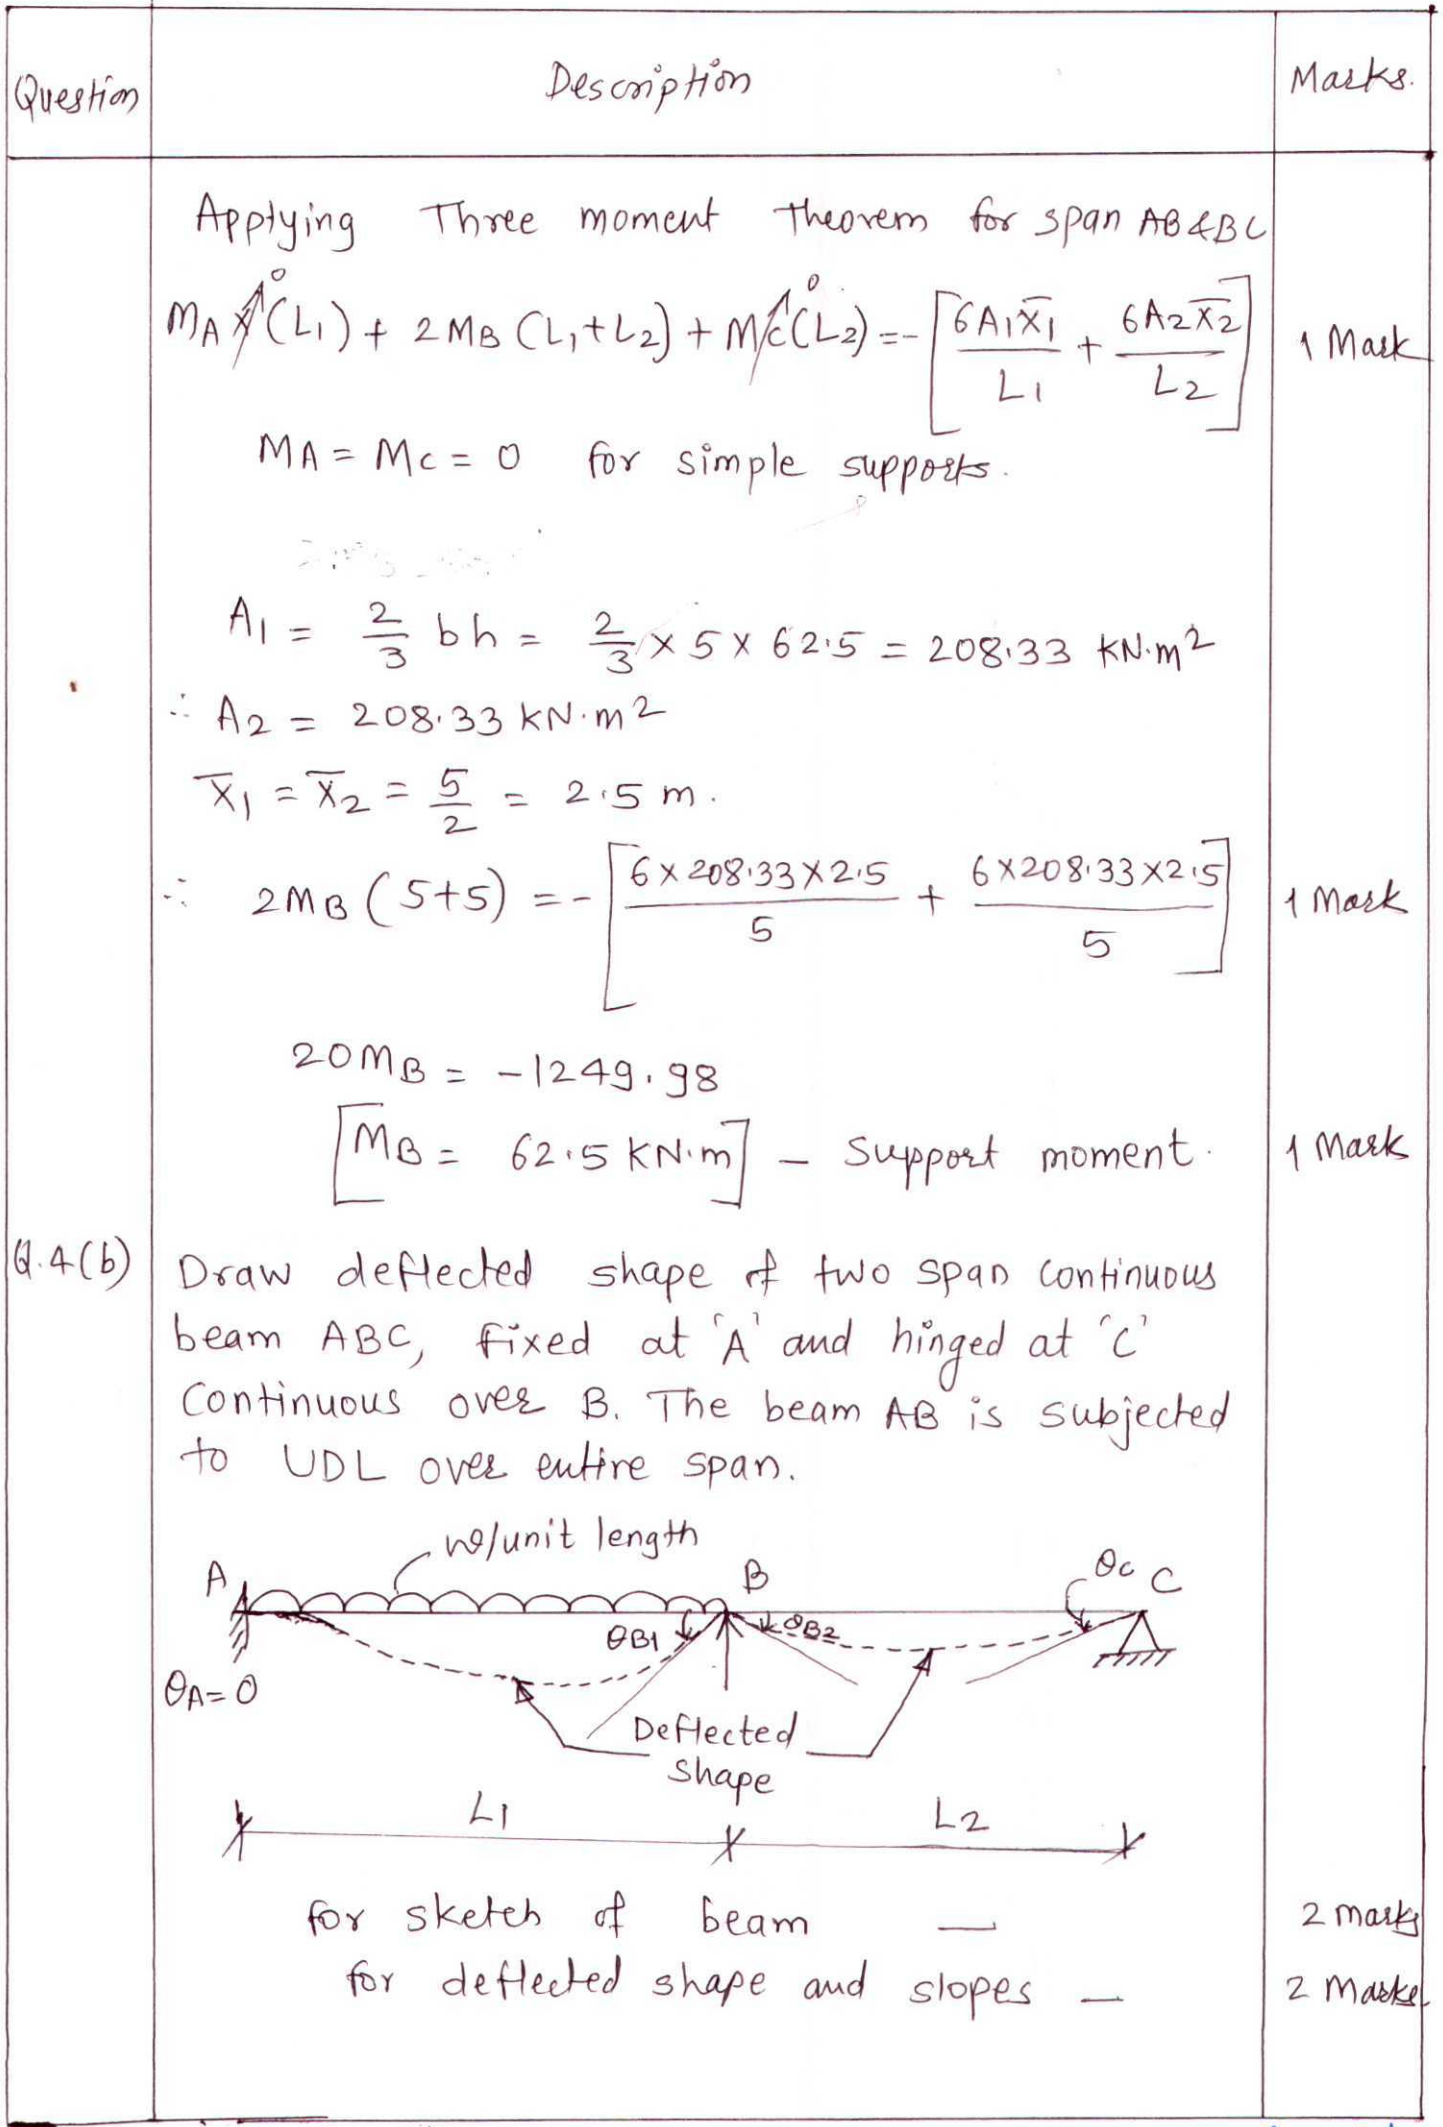 Question Description Marks.
Applying Three moment Theorem for span AB & BC
MA (L1) + 2MB (L1+L2) + Mc(L2) = - [6A1x̄1/L1 + 6A2x̄2/L2] 1 Mark
0 0
MA = Mc = 0 for simple supports.
A1 = 2/3 bh = 2/3 x 5 x 62.5 = 208.33 KN.m2
∴ A2 = 208.33 KN.m2
x̄1 = x̄2 = 5/2 = 2.5 m.
∴ 2MB (5+5) = - [6 x 208.33 x 2.5/5 + 6 x 208.33 x 2.5/5] 1 Mark
20MB = -1249.98
[MB = 62.5 KN.m] - Support moment. 1 Mark
Q.4(b) Draw deflected shape of two span continuous
beam ABC, fixed at 'A' and hinged at 'C'
Continuous over B. The beam AB is subjected
to UDL over entire span.
w/unit length
A B θc C
θB1 θB2
θA=0
Deflected
shape
L1 L2
for sketch of beam — 2 marks
for deflected shape and slopes — 2 Marks.